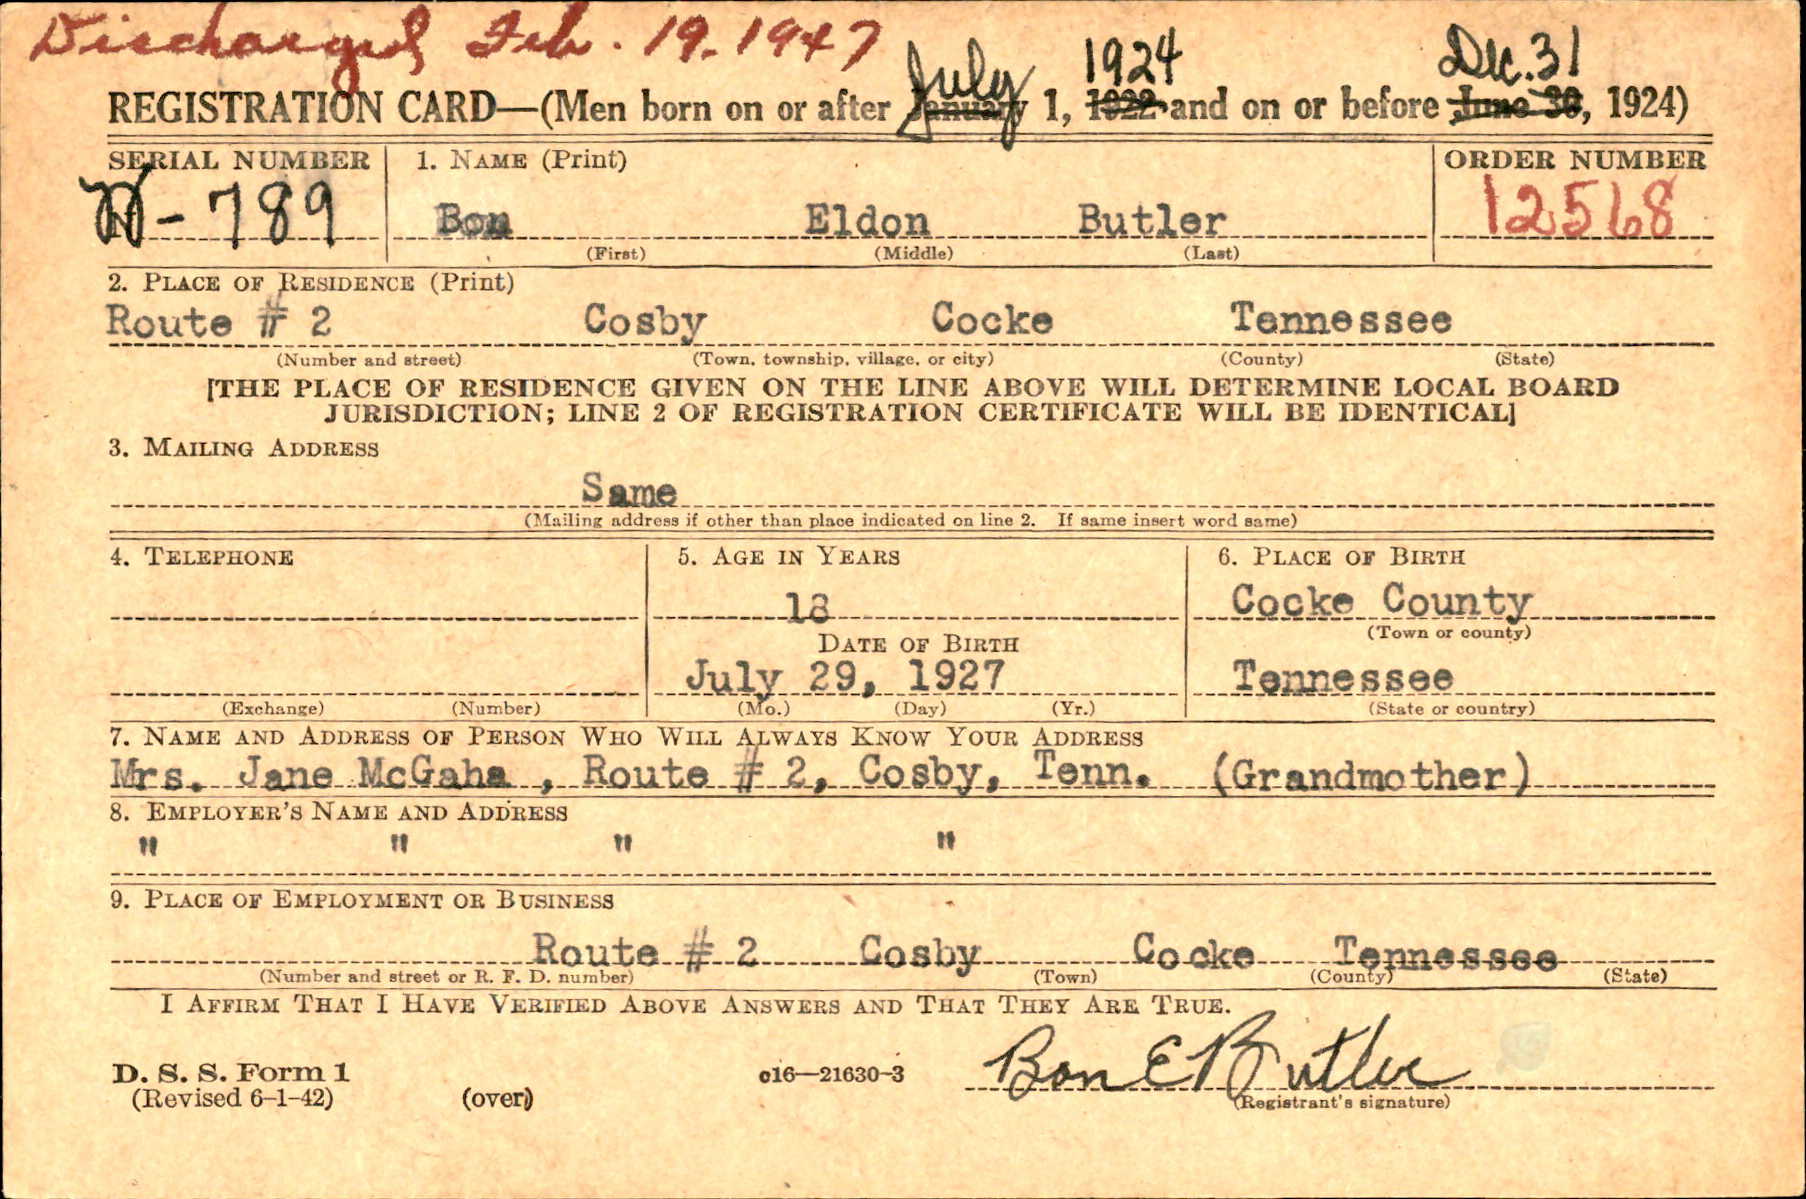 Discharged Feb. 19. 1947
July 1924 Dec. 31
REGISTRATION CARD—(Men born on or after January 1, 1922 and on or before June 30, 1924)
SERIAL NUMBER 1. NAME (Print) ORDER NUMBER
W-789 Bon Eldon Butler 12568
(First) (Middle) (Last)
2. PLACE OF RESIDENCE (Print)
Route # 2 Cosby Cocke Tennessee
(Number and street) (Town, township, village, or city) (County) (State)
[THE PLACE OF RESIDENCE GIVEN ON THE LINE ABOVE WILL DETERMINE LOCAL BOARD
JURISDICTION; LINE 2 OF REGISTRATION CERTIFICATE WILL BE IDENTICAL]
3. MAILING ADDRESS
Same
(Mailing address if other than place indicated on line 2. If same insert word same)
4. TELEPHONE 5. AGE IN YEARS 6. PLACE OF BIRTH
18 Cocke County
DATE OF BIRTH (Town or county)
July 29, 1927 Tennessee
(Exchange) (Number) (Mo.) (Day) (Yr.) (State or country)
7. NAME AND ADDRESS OF PERSON WHO WILL ALWAYS KNOW YOUR ADDRESS
Mrs. Jane McGaha , Route # 2, Cosby, Tenn. (Grandmother)
8. EMPLOYER'S NAME AND ADDRESS
" " " "
9. PLACE OF EMPLOYMENT OR BUSINESS
Route # 2 Cosby Cocke Tennessee
(Number and street or R. F. D. number) (Town) (County) (State)
I AFFIRM THAT I HAVE VERIFIED ABOVE ANSWERS AND THAT THEY ARE TRUE.
D. S. S. Form 1 c16—21630-3 Bon E Butler
(Revised 6-1-42) (over) (Registrant's signature)